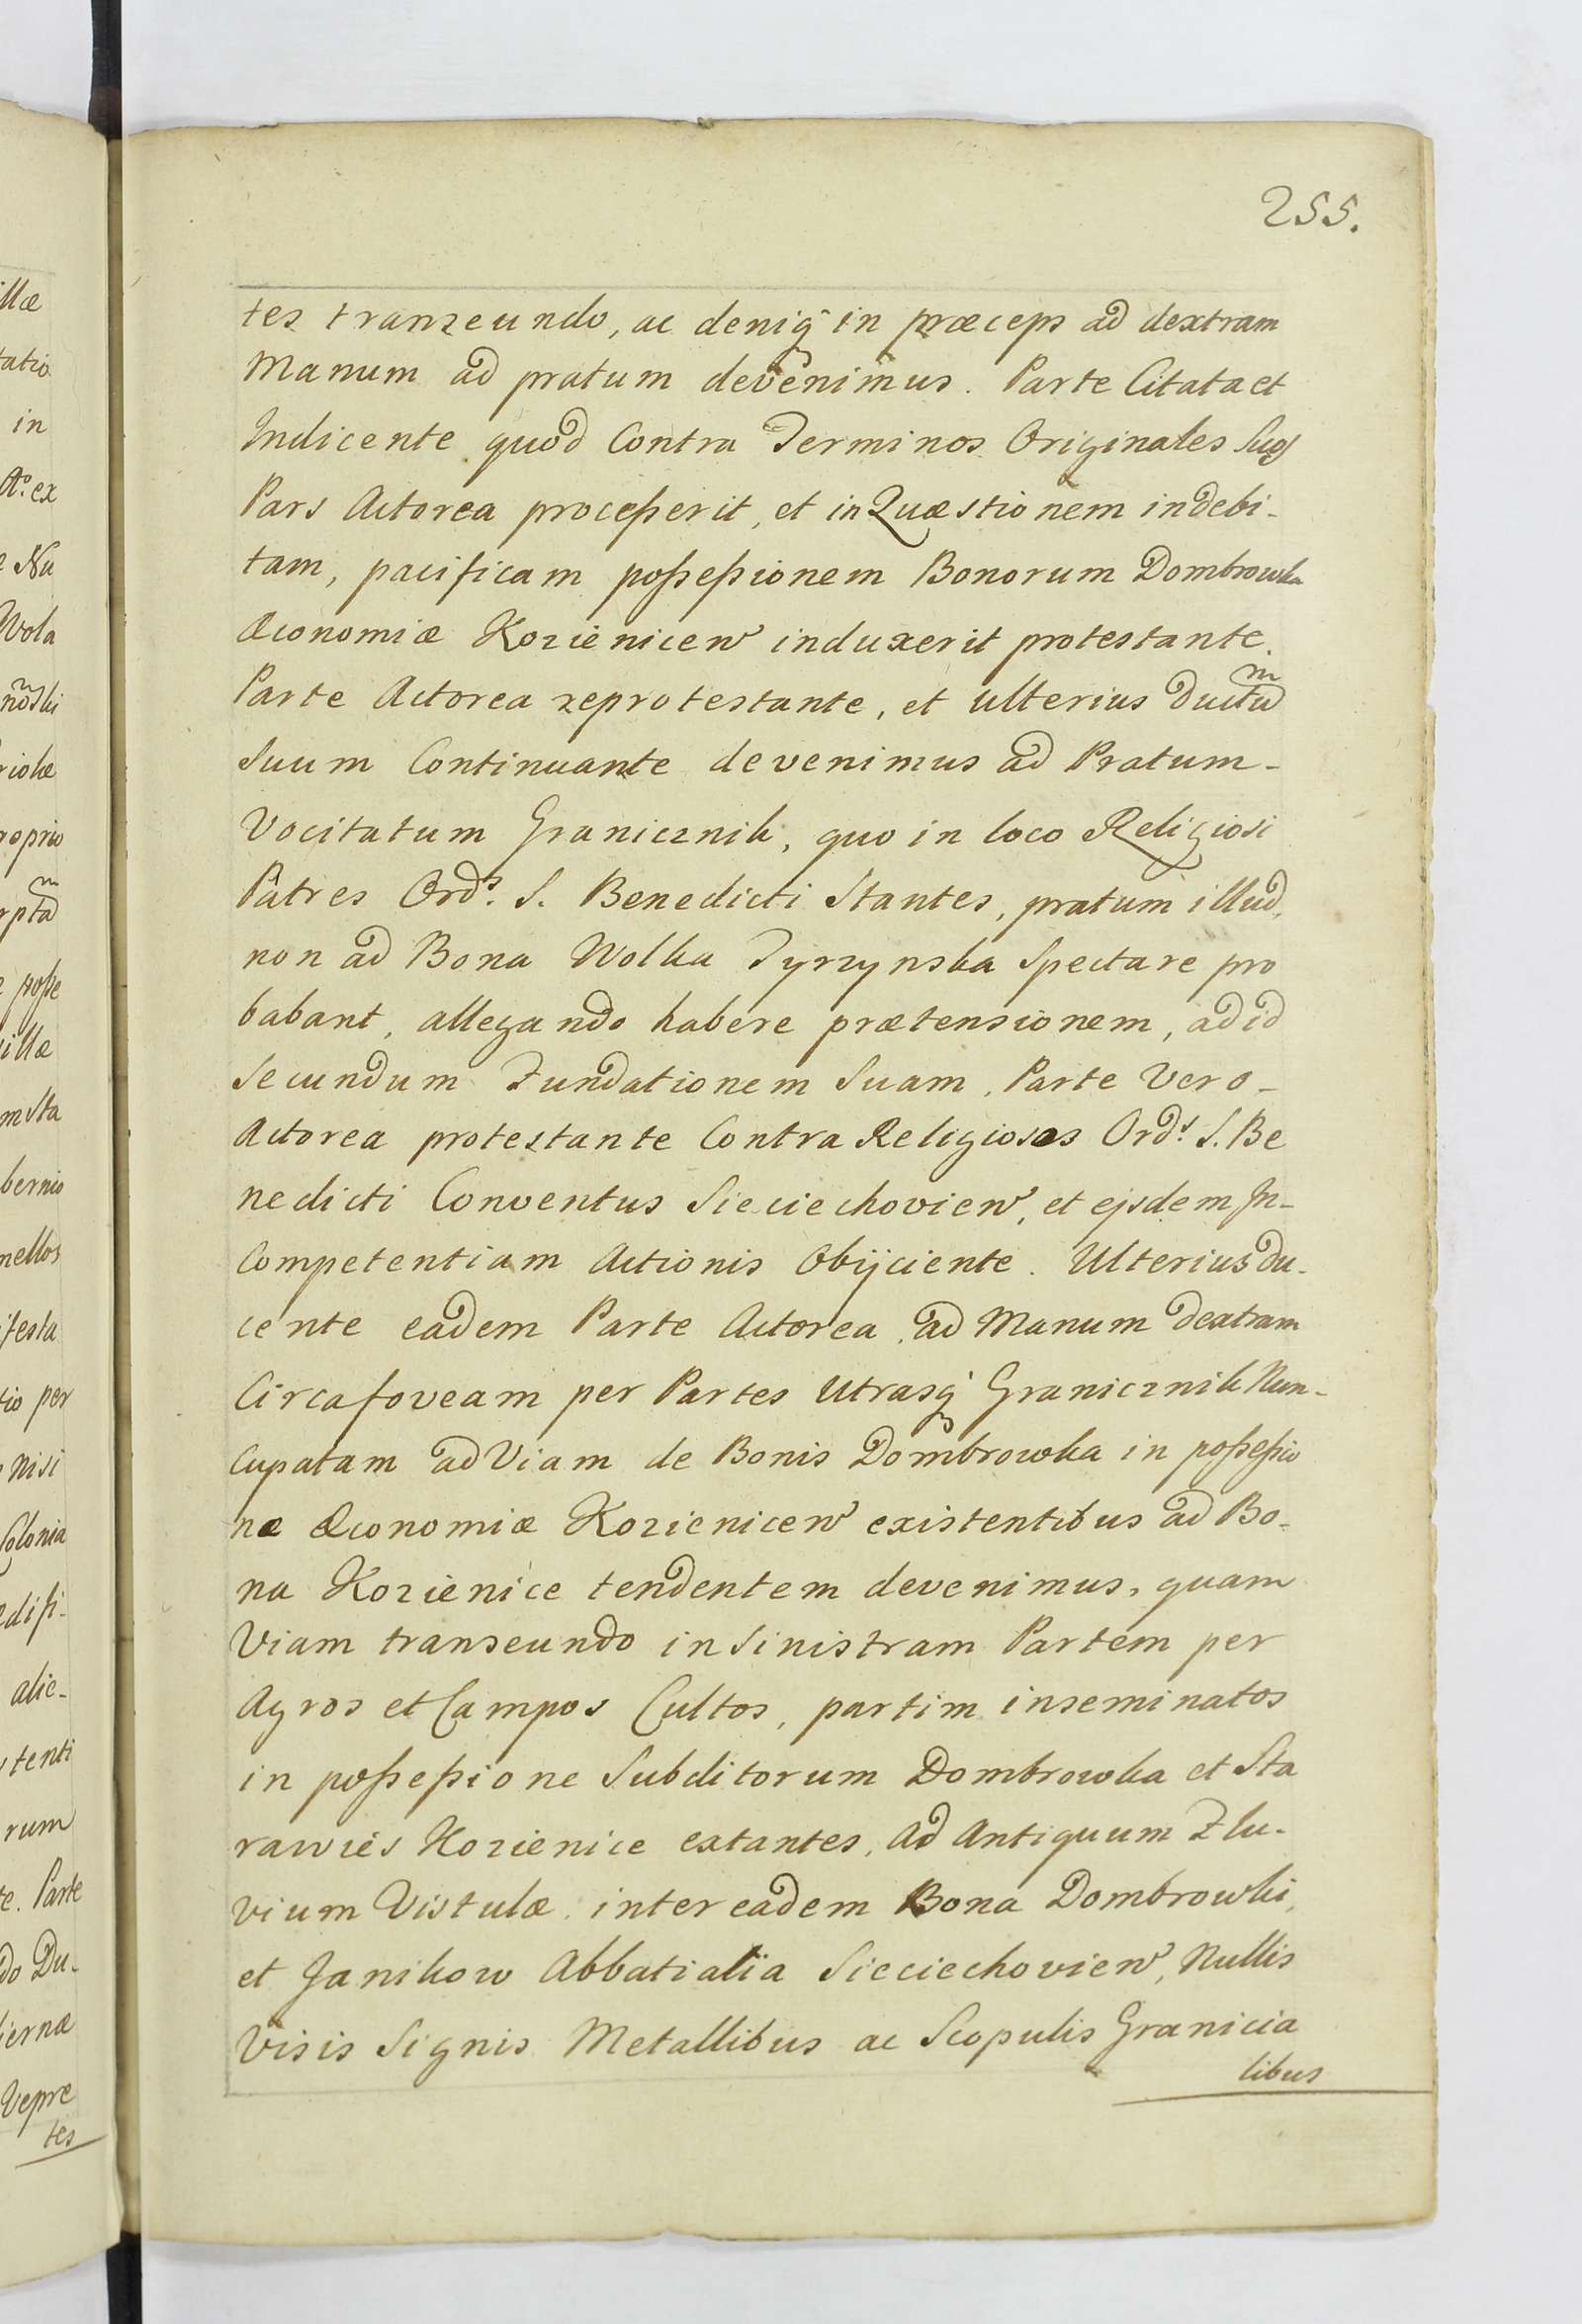 255.
tes transeundo, ac deniq in præceps ad dextram
Manum ad pratum devenimus. Parte Citata et
Indicente quod Contra Terminos Originales Suos
Pars Actorea processerit, et in Quæstionem indebi-
tam, pacificam possessionem Bonorum Dombrowka
Œconomiæ Kozienicen induxerit protestante.
Parte Actorea reprotestante, et ulterius Ductum
Suum Continuante devenimus ad Pratum-
Vocitatum Granicznik, quo in loco Religiosi
Pâtres Ords. S. Benedicti Stantes, pratum illud,
non ad Bona Wolka Tyrzynska Spectare pro
babant, allegando habere prætensionem, ad id
Secundum Fundationem Suam. Parte Vero-
Actorea protestante Contra Religiosos Ords. S. Be
nedicti Conventus Sieciechovien, et ejsdem In-
Competentiam Actionis Obijciente. Ulterius du-
cente eadem Parte Actorea ad Manum dextram
Circa foveam per Partes Utrasq Granicznik Nun-
Cupatam ad Viam de Bonis Dombrowka in possessio
ne Œconomiæ Kozienicen existentibus ad Bo-
na Kozienice tendentem devenimus, quam
Viam transeundo in Sinistram Partem per
Agros et Campos Cultos, partim inseminatos
in possessione Subditorum Dombrowka et Sta
rawies Kozienice extantes, Ad Antiquum Flu-
vium Vistulæ inter eadem Bona Dombrowki,
et Janikow Abbatialia Sieciechovien, Nullis
Visis Signis Metallibus ac Scopulis Granicia
libus
illæ
tatio
in
Ao. ex
e Nu
Wola
noski
roprio
posse
illæ
bernio
mellos
festa
tio per
nisi
Colonia
edifi-
alie-
tenti
rum
te. Parte
do Du-
iernæ
Vepre
tes